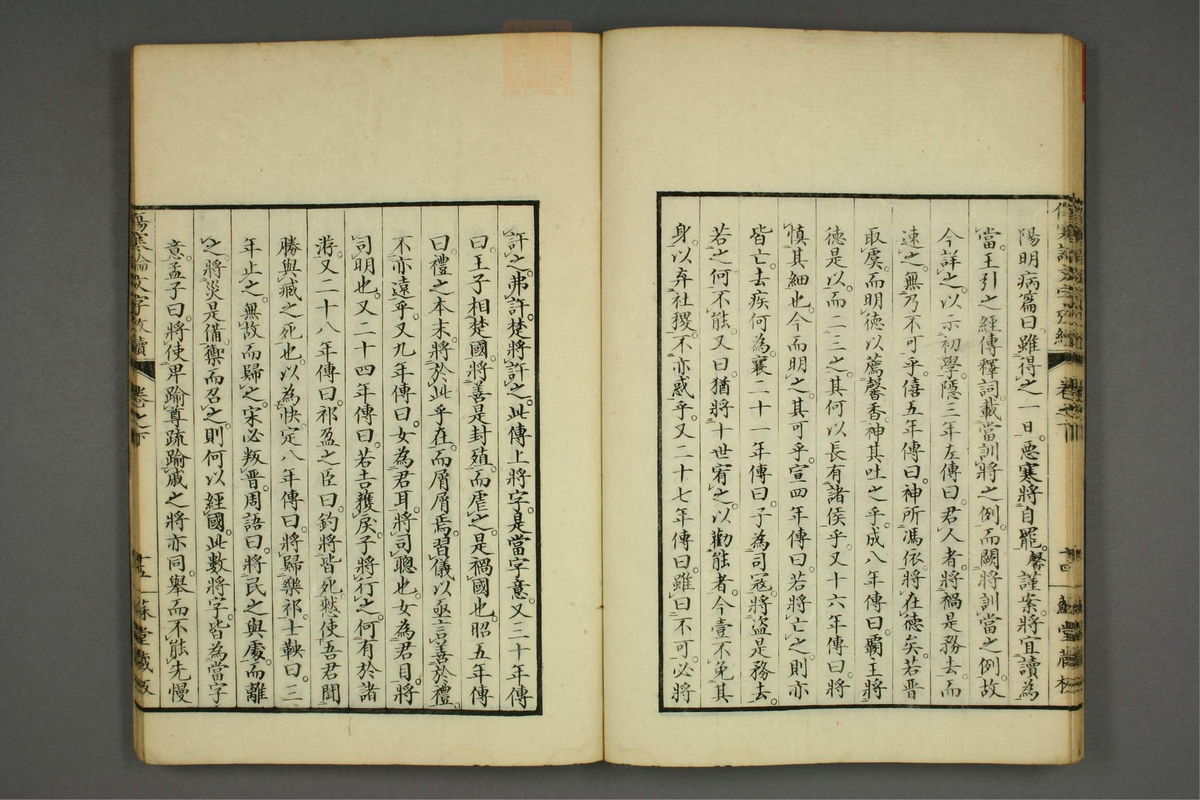 陽明病篇曰。雖得之一日。惡寒將自罷。馨謹案。將宜讀為
當。王引之經傳釋詞。載當訓將之例。而闕將訓當之例。故
今詳之。以示初學。隱三年左傳曰。君人者。將禍是務去。而
速之。無乃不可乎。僖五年傳曰。神所馮依。將在德矣。若晉
取虞。而明德以薦馨香。神其吐之乎。成八年傳曰。霸王將
德是以。而二三之。其何以長有諸侯乎。又十六年傳曰。將
慎其細也。今而明之。其可乎。宣四年傳曰。若將亡之。則亦
皆亡。去疾何為。襄二十一年傳曰。子為司寇。將盜是務去。
若之何不能。又曰。猶將十世宥之。以勸能者。今壹不免其
身。以弃社稷。不亦惑乎。又二十七年傳曰。雖曰不可。必將
許之。弗許。楚將許之。此傳上將字。是當字意。又三十年傳
曰。王子相楚國。將善是封殖。而虐之。是禍國也。昭五年傳
曰。禮之本末。將於此乎在。而屑屑焉。習儀以亟。言善於禮。
不亦遠乎。又九年傳曰。女為君耳。將司聰也。女為君目。將
司明也。又二十四年傳曰。若吉獲戾。子將行之。何有於諸
游。又二十八年傳曰。祁盈之臣曰。鈞將皆死。憖使吾君聞
勝與臧之死也。以為快。定八年傳曰。將歸樂祁。士鞅曰。三
年止之。無故而歸之。宋必叛晉。周語曰。將民之與處。而離
之。將災是備禦。而召之。則何以經國。此數將字。皆為當字
意。孟子曰。將使卑踰尊。疏踰戚之將亦同。舉而不能先。慢
傷寒論文字攷續 卷之下 十四 蘇堂藏板
傷寒論文字攷續 卷之下 十五 蘇堂藏板